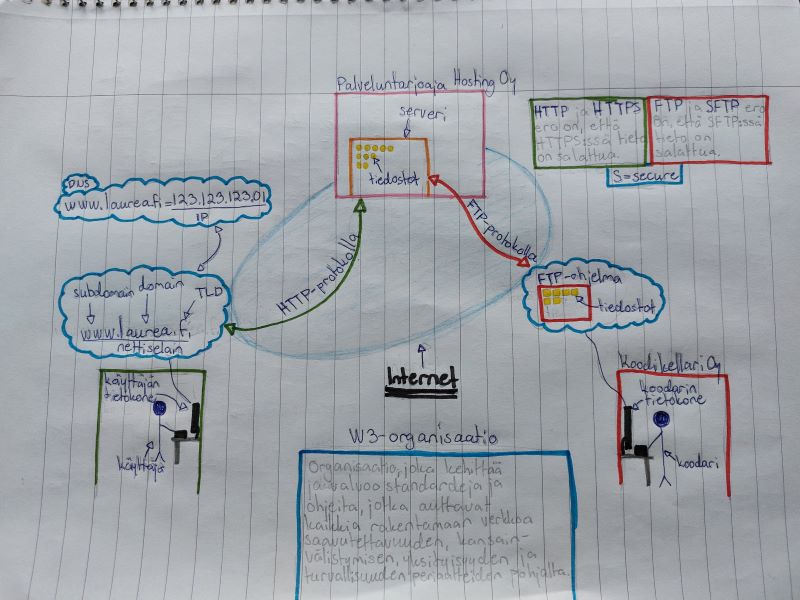 Palveluntarjoaja Hosting Oy
serveri
tiedostot
HTTP ja HTTPS
ero on, että
HTTPS:ssä tieto
on salattua.
FTP ja SFTP ero
on, että SFTP:ssä
tieto on
salattua.
S=secure
DNS
www.laurea.fi=123.123.123.01
IP
subdomain domain TLD
www.laurea.fi
nettiselain
HTTP-protokolla
FTP-protokolla
FTP-ohjelma
tiedostot
Internet
käyttäjän
tietokone
käyttäjä
Koodikellari Oy
koodarin
tietokone
koodari
W3-organisaatio
Organisaatio, joka kehittää
ja valvoo standardeja ja
ohjeita, jotka auttavat
kaikkia rakentamaan verkkoa
saavutettavuuden, kansain-
välistymisen, yksityisyyden ja
turvallisuuden periaatteiden pohjalta.